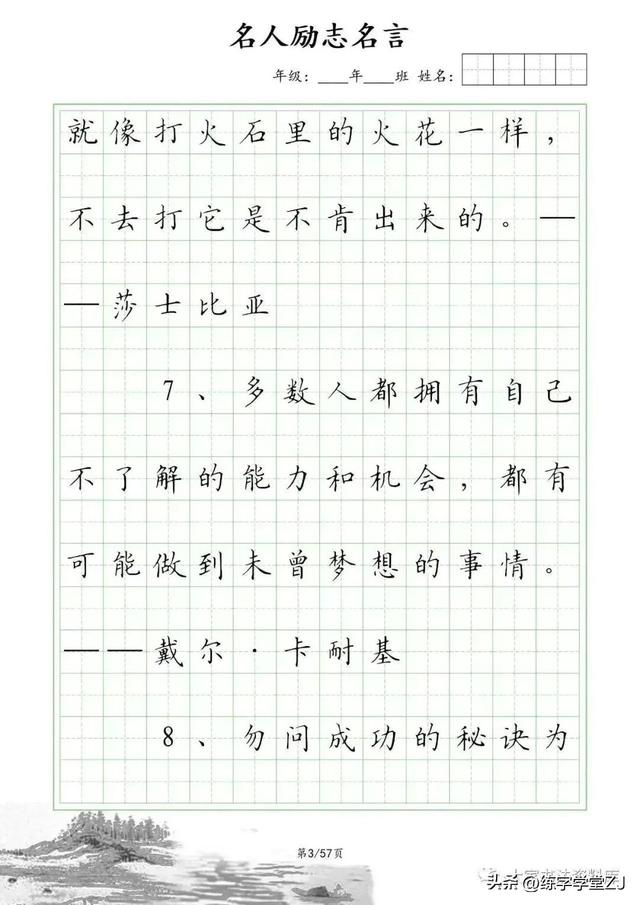 名人励志名言
年级：____年____班 姓名：
就像打火石里的火花一样，
不去打它是不肯出来的。—
—莎士比亚
7、多数人都拥有自己
不了解的能力和机会，都有
可能做到未曾梦想的事情。
——戴尔·卡耐基
8、勿问成功的秘诀为
第3/57页
头条@练字学堂ZJ